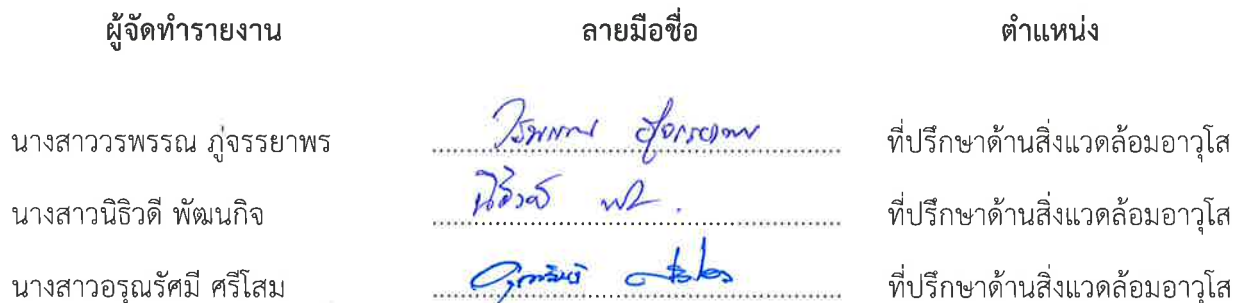 ผู้จัดทำรายงาน ลายมือชื่อ ตำแหน่ง
นางสาววรพรรณ ภู่จรรยาพร ที่ปรึกษาด้านสิ่งแวดล้อมอาวุโส
นางสาวนิธิวดี พัฒนกิจ ที่ปรึกษาด้านสิ่งแวดล้อมอาวุโส
นางสาวอรุณรัศมี ศรีโสม ที่ปรึกษาด้านสิ่งแวดล้อมอาวุโส